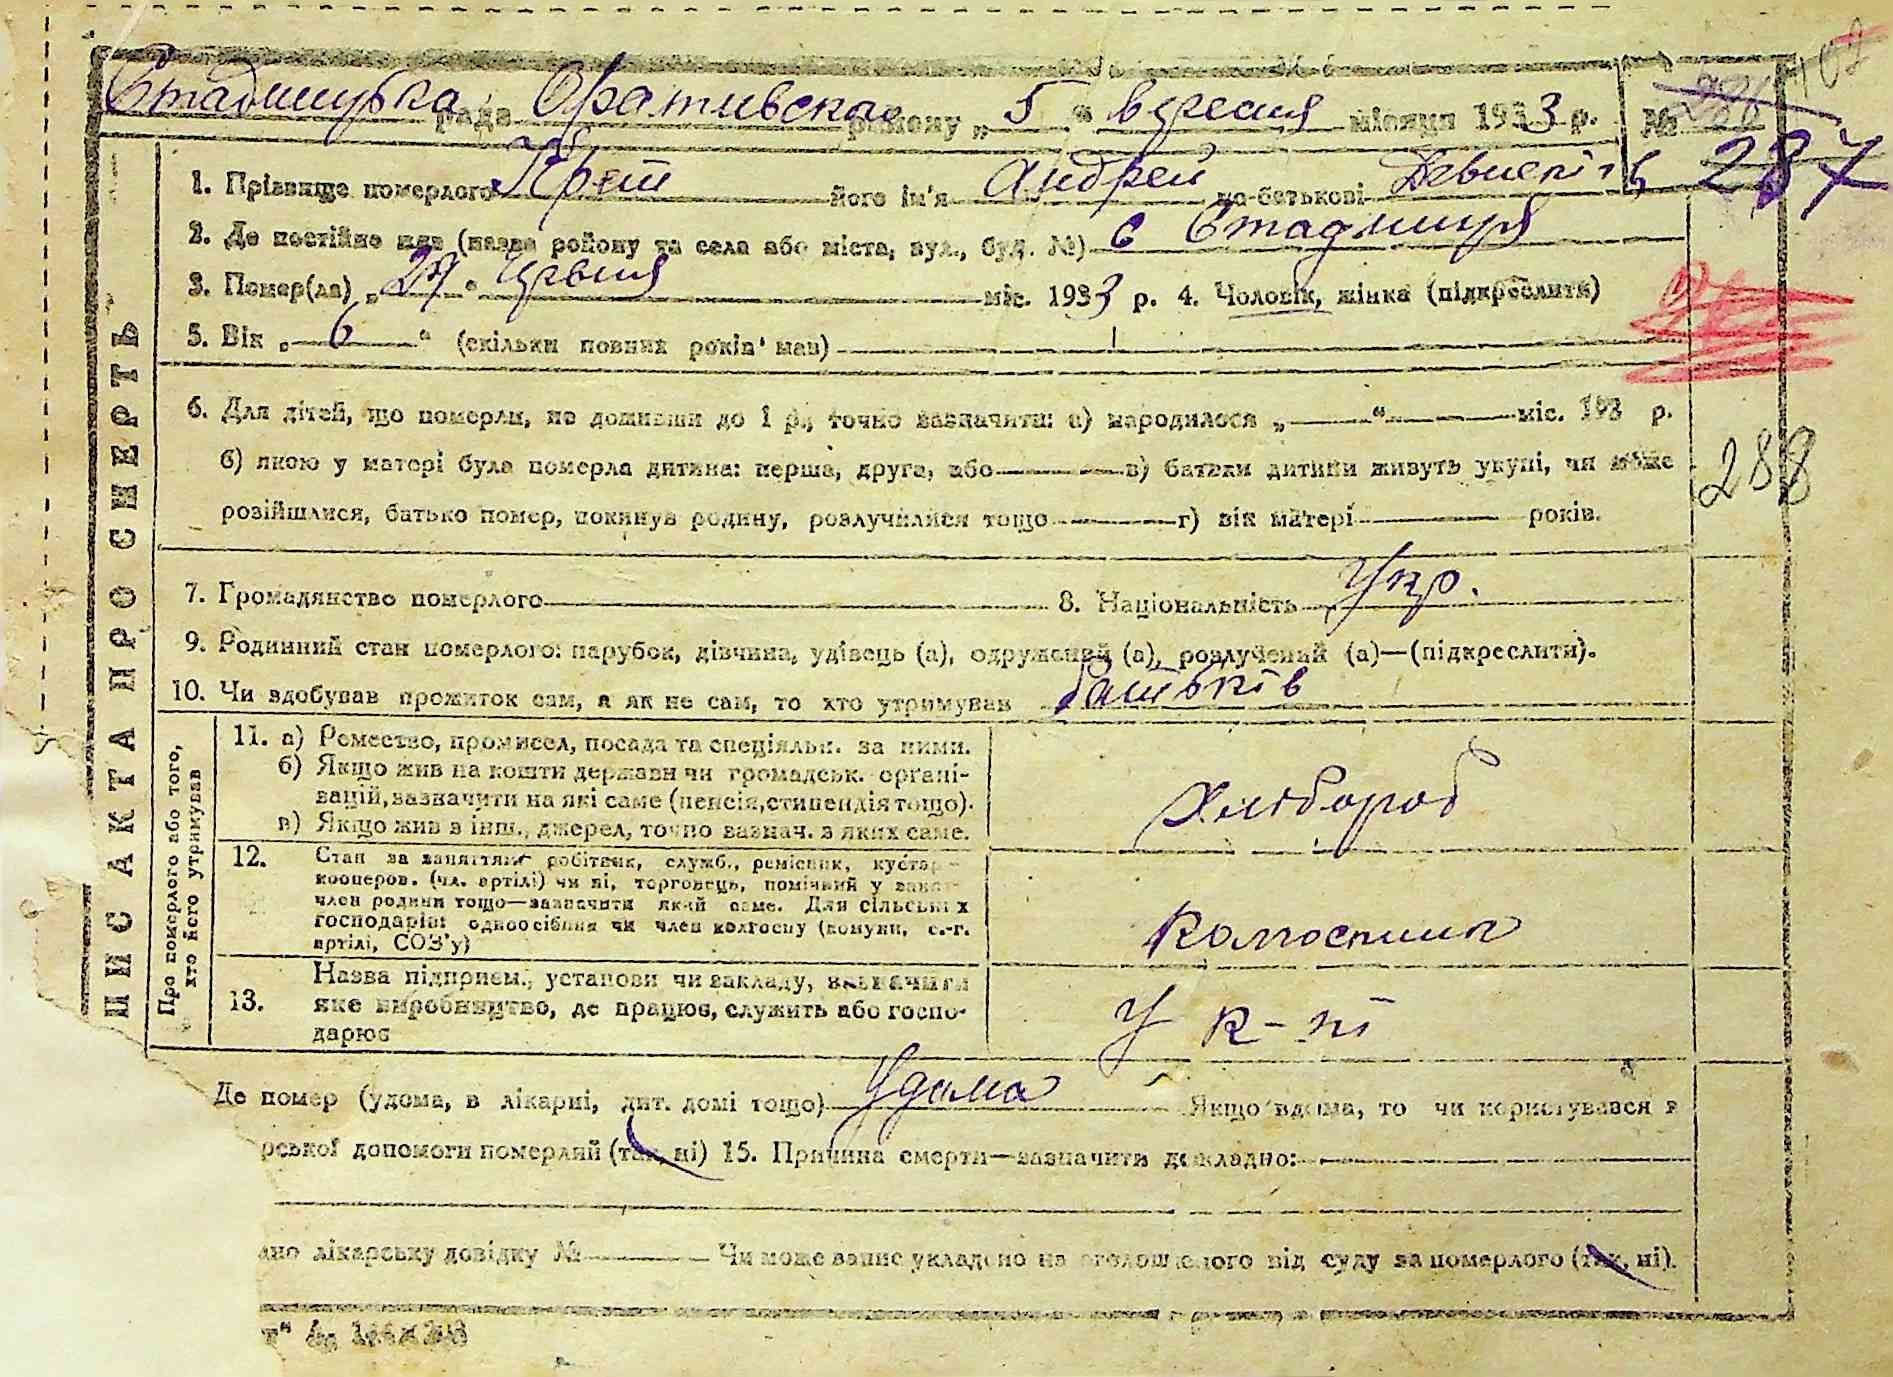 рада Оративського району „ 5 “ вересня місяця 1933 р. №
287
1. Прізвище померлого його ім'я Андрей по-батькові
2. Де постійно жив (назва району та села або міста, вул., буд. №) с
3. Помер(ла) „ “ міс. 1933 р. 4. Чоловік, жінка (підкреслити)
5. Вік „ 6 “ (скільки повних років мав)
6. Для дітей, що померли, не доживши до 1 р., точно зазначити: а) народилося „ “ міс. 193 р.
б) якою у матері була померла дитина: перша, друга, або в) батьки дитини живуть укупі, чи може
288
розійшлися, батько помер, покинув родину, розлучилися тощо г) вік матері років.
7. Громадянство померлого 8. Національність Укр.
9. Родинний стан померлого: парубок, дівчина, удівець (а), одружений (а), розлучений (а)—(підкреслити).
10. Чи здобував прожиток сам, а як не сам, то хто утримував
ПИС АКТА ПРО СМЕРТЬ
Про померлого або того, хто його утримував
11. а) Ремество, промисел, посада та спеціяльн. за ними.
б) Якщо жив на кошти держави чи громадськ. органі-
зацій, зазначити на які саме (пенсія, стипендія тощо).
в) Якщо жив з інш. джерел, точно зазнач. з яких саме.
Хлібороб
12. Стан за заняттям робітник, служб., ремісник, кустар-
кооперов. (чл. артілі) чи ні, торговець, помічний у
член родини тощо—зазначити який саме. Для сільських
господарів: одноосібник чи член колгоспу (комуни, с.-г.
артілі, СОЗ'у)
Колгоспник
13. Назва підприєм., установи чи закладу, зазначити
яке виробництво, де працює, служить або госпо-
дарює
У к-пі
Де помер (удома, в лікарні, дит. домі тощо) Удома Якщо вдома, то чи користувався з
рської допомоги померлий (так, ні) 15. Причина смерти—зазначити докладно:
ано лікарську довідку № Чи може запис укладено на оголошеного від суду за померлого (так, ні).